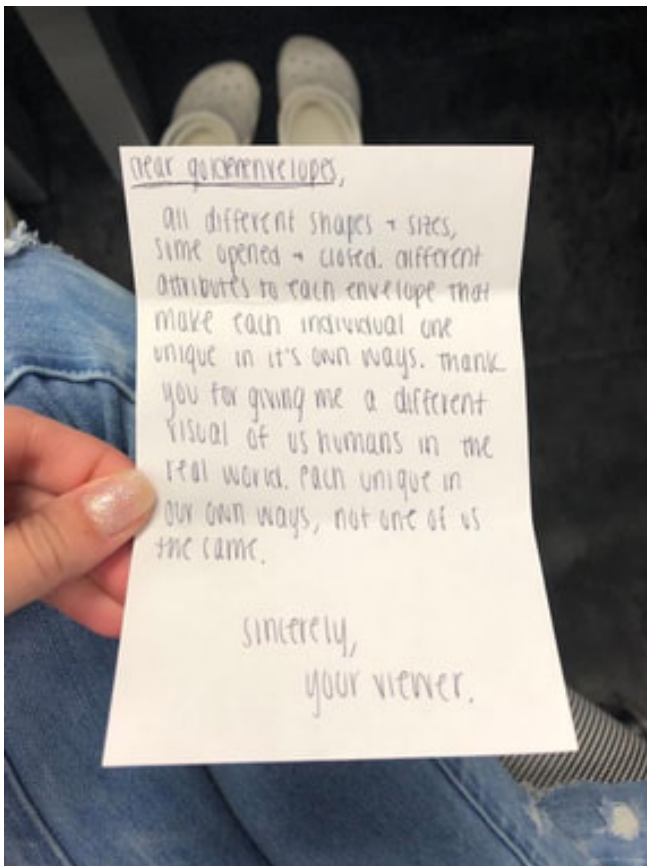 dear goldenenvelopes,
all different shapes + sizes,
some opened + closed. different
attributes to each envelope that
make each individual one
unique in it's own ways. thank
you for giving me a different
visual of us humans in the
real world. each unique in
our own ways, not one of us
the same.
sincerely,
your viewer.